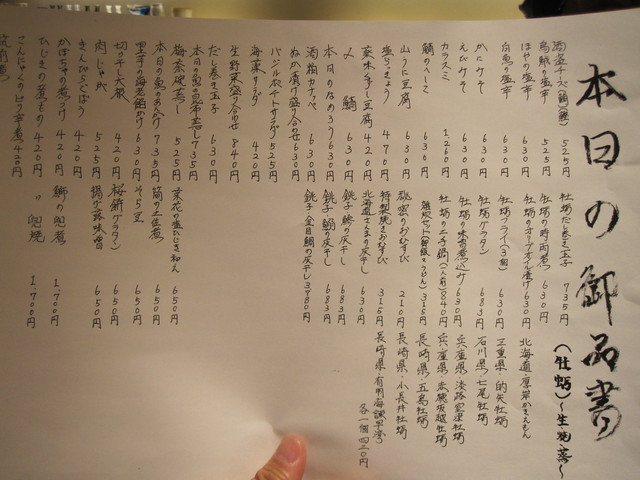 本日の御品書
酒盗チーズ(鮪)(鰹) 525円
烏賊の塩辛 525円
ほやの塩辛 630円
白魚の塩辛 630円
かにみそ 630円
えびみそ 630円
カラスミ 1,260円
鯖のへしこ 630円
山うに豆腐 630円
塩らっきょう 470円
薬味冷し豆腐 420円
〆鯖 630円
本日のなめろう 630円
酒粕カナッペ 630円
ぬか漬け盛り合わせ 630円
バジルポテトサラダ 525円
海藻サラダ 420円
生野菜盛り合わせ 840円
だし巻き玉子 630円
本日の魚昆布蒸し 735円
梅茶碗蒸し 525円
本日の魚のあらだき 735円
里芋の海老餡かけ 630円
切り干し大根 420円
肉じゃが 525円
きんぴらごぼう 420円
かぼちゃの煮つけ 420円
ひじきの煮もの 420円
こんにゃくのピリ辛煮 420円
筑前煮
牡蛎だし巻き玉子 735円
牡蛎の時雨煮 630円
牡蛎のオリーブオイル漬け 630円
牡蛎フライ(3個)
牡蛎グラタン 683円
牡蛎の味噌煮込み 630円
牡蛎の土手鍋(一人前) 840円
雑炊セット(御飯orうどん) 315円
秘密のおむすび 210円
特製焼きおむすび 315円
北海道さんまの灰干し 630円
銚子 鯵の灰干し 683円
銚子 鰯の灰干し 683円
銚子 金目鯛の灰干し 3,780円
菜花の塩ひじき和え 650円
筍の土佐煮 650円
そら豆 650円
桜餅グラタン 650円
揚げ蕗味噌 650円
鰤の兜煮 1,700円
〃 兜焼 1,700円
(牡蛎)〜生・焼・蒸〜
北海道・厚岸かきえもん
三重県・的矢牡蛎
石川県・七尾牡蛎
兵庫県・淡路室津牡蛎
兵庫県・赤穂坂越牡蛎
長崎県・五島牡蛎
長崎県・小長井牡蛎
長崎県・有明海諫早湾
各一個 四二〇円